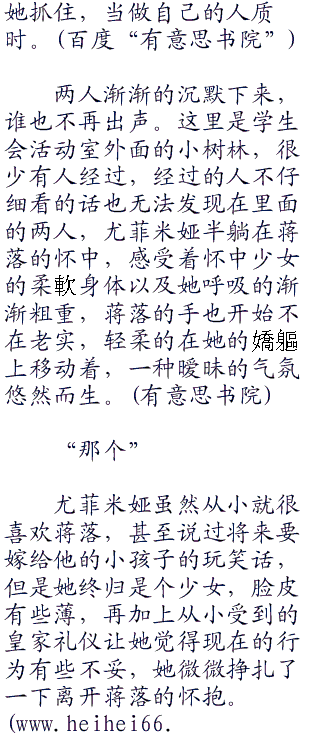 她抓住，当做自己的人质
时。(百度“有意思书院”)
两人渐渐的沉默下来，
谁也不再出声。这里是学生
会活动室外面的小树林，很
少有人经过，经过的人不仔
细看的话也无法发现在里面
的两人，尤菲米娅半躺在蒋
落的怀中，感受着怀中少女
的柔軟身体以及她呼吸的渐
渐粗重，蒋落的手也开始不
在老实，轻柔的在她的嬌軀
上移动着，一种暧昧的气氛
悠然而生。(有意思书院)
“那个”
尤菲米娅虽然从小就很
喜欢蒋落，甚至说过将来要
嫁给他的小孩子的玩笑话，
但是她终归是个少女，脸皮
有些薄，再加上从小受到的
皇家礼仪让她觉得现在的行
为有些不妥，她微微挣扎了
一下离开蒋落的怀抱。
(www.heihei66.